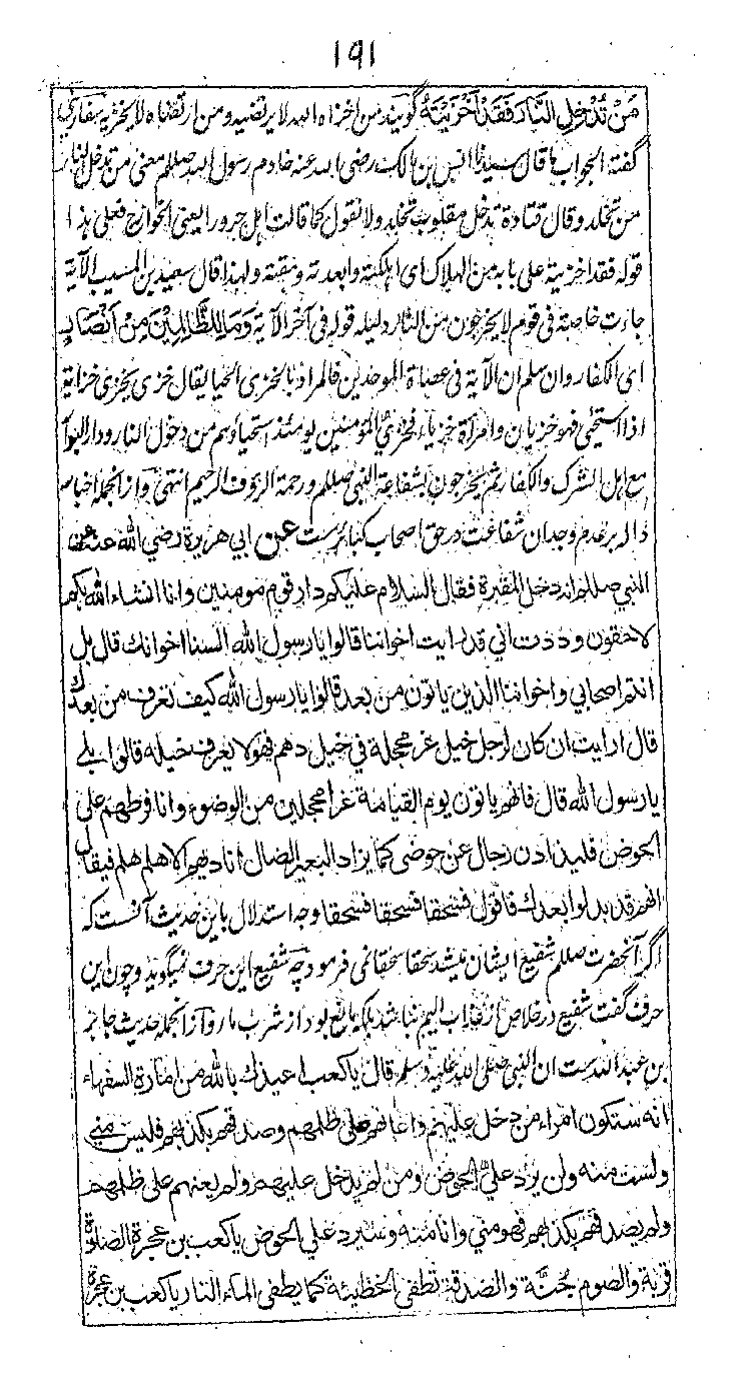 ۱۹۱
مَنْ تُدْخِلِ النَّارَ فَقَدْ اَخْزَیْتَهُ گویند من اخزاه الله لا یرتضیه و من ارتضاه لا یخزیه سفارینی
گفته الجواب ما قال سیدنا انس بن مالک رضی الله عنه خادم رسول الله صللم معنی من تدخل النار
من تخلد و قال قتادة تدخل مقلوب تخلد و لا نقول کما قالت اهل حرورا یعنی الخوارج فعلی هذا
قوله فقد اخزیته علی بابه من الهلاک ای اهلکته و ابعدته و مقته و لهذا قال سعید بن المسیب الآیة
جاءت خاصة فی قوم لا یخرجون من النار دلیله قوله فی آخر الآیة وَمَا لِلظَّالِمِیْنَ مِنْ اَنْصَارٍ
ای الکفار و ان سلم ان الآیة فی عصاة الموحدین فالمراد بالخزی الحیا یقال خزی یخزی خزایة
اذا استحیی فهو خزیان و امرأة خزیاء فخزی المؤمنین یومئذ استحیاؤهم من دخول النار و دار البوار
مع اهل الشرک و الکفار ثم یخرجون بشفاعة النبی صللم و رحمة الرؤف الرحیم انتهی و ازانجمله اخبار
داله بر عدم وجدان شفاعت در حق اصحاب کبائرست عن ابي هريرة رضي الله عنه عن
النبي صللم انه دخل المقبرة فقال السلام عليكم دار قوم مومنين وانا انشاء الله بكم
لاحقون وددت اني قد رايت اخواننا قالوا يا رسول الله السنا اخوانك قال بل
انتم اصحابي واخواننا الذين ياتون من بعد قالوا يا رسول الله كيف تعرف من بعدك
قال ارايت ان كان لرجل خيل غر محجلة في خيل دهم فهو لا يعرف خيله قالوا بلے
يا رسول الله قال فانهم ياتون يوم القيامة غرا محجلين من الوضوء وانا فرطهم على
الحوض فليذادن رجال عن حوضی كما يزاد البعير الضال اناديهم الا هلم هلم فيقال
انهم قد بدلوا بعدك فاقول فسحقا فسحقا فسحقا وجه استدلال باین حدیث آنست که
اگر آنحضرت صللم شفیع ایشان میشد سحقا سحقا نمی فرمود چه شفیع این حرف نمیگوید و چون این
حرف گفت شفیع در خلاص از عذاب الیم نباشد بلکه مانع بود از شرب ما و ازانجمله حدیث جابر
بن عبد الله ست ان النبی صلی الله علیه وسلم قال یا کعب اعیذك بالله من امارة السفهاء
انه ستكون امراء من دخل عليهم واعانهم على ظلمهم وصدقهم بكذبهم فليس مني
ولست منه ولن يرد علي الحوض ومن لم يدخل عليهم ولم يعنهم على ظلمهم
ولم يصدقهم بكذبهم فهو مني وانا منه وسيرد علي الحوض يا كعب بن عجرة الصلوة
قربة والصوم جُنَّة والصدقة تطفى الخطيئة كما يطفى الماء النار يا كعب بن عجرة